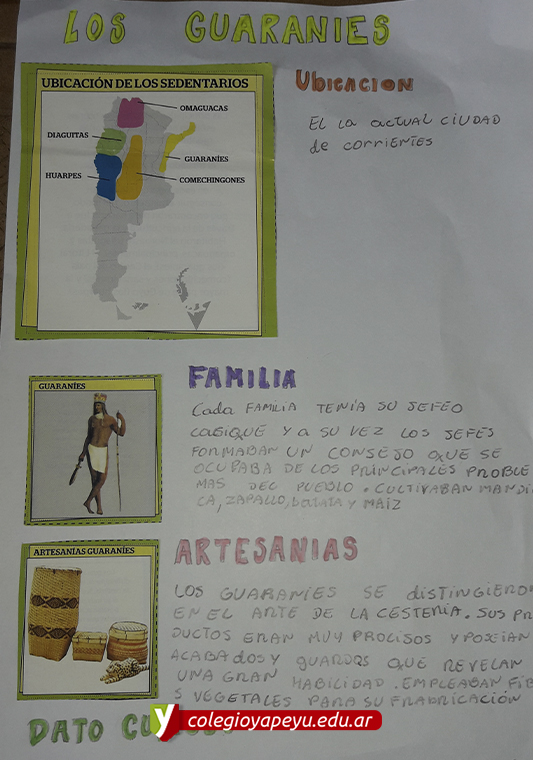 LOS GUARANIES
UBICACIÓN DE LOS SEDENTARIOS
OMAGUACAS
DIAGUITAS
GUARANÍES
HUARPES
COMECHINGONES
UBICACION
EL LA actual CIUDAD
de CORRIENTES
GUARANÍES
FAMILIA
Cada FAMILIA TENÍA SU JEFEO
CASIQUE Y A SU VEZ LOS JEFES
FORMABAN UN CONSEJO QUE SE
OCUPABA DE LOS PRINCIPALES PROBLE
MAS DEL PUEBLO. CULTIVABAN MANDI
CA, ZAPALLO, batata y MAIZ
ARTESANÍAS GUARANÍES
ARTESANIAS
LOS GUARANÍES SE dISTINGIERO
EN EL ARTE DE LA CESTERIA. SUS PR
DUCTOS ERAN MUY PROLISOS Y POSEIAN
ACABAdOS Y GUARDAS QUE REVELAN
UNA GRAN HABILIDAD. EMPLEABAN FIB
S VEGETALES PARA SU FRABRICACIÓN
DATO
colegioyapeyu.edu.ar